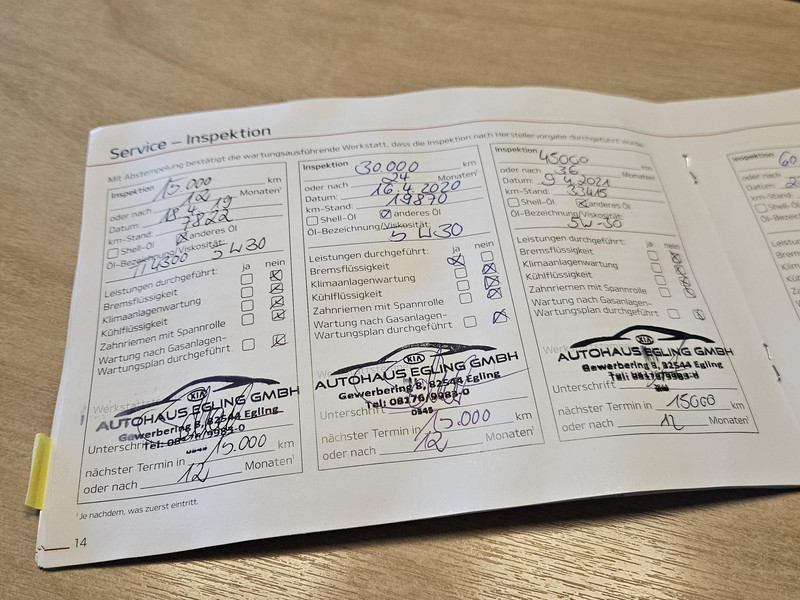 Service – Inspektion
Mit Abstempelung bestätigt die wartungsausführende Werkstatt, dass die Inspektion nach Herstellervorgabe durchgeführt wurde.
Inspektion 15.000 km
oder nach 12 Monaten¹
Datum: 18.4.19
km-Stand: 7822
Shell-Öl anderes Öl
Öl-Bezeichnung/Viskosität:
5W30
Leistungen durchgeführt: ja nein
Bremsflüssigkeit
Klimaanlagenwartung
Kühlflüssigkeit
Zahnriemen mit Spannrolle
Wartung nach Gasanlagen-
Wartungsplan durchgeführt
KIA
AUTOHAUS EGLING GMBH
Gewerbering 8, 82544 Egling
Tel: 08176/9983-0
Unterschrift
nächster Termin in 15.000 km
oder nach 12 Monaten¹
Inspektion 30.000 km
oder nach 24 Monaten¹
Datum: 16.4.2020
km-Stand: 19870
Shell-Öl anderes Öl
Öl-Bezeichnung/Viskosität:
5W30
Leistungen durchgeführt: ja nein
Bremsflüssigkeit
Klimaanlagenwartung
Kühlflüssigkeit
Zahnriemen mit Spannrolle
Wartung nach Gasanlagen-
Wartungsplan durchgeführt
KIA
AUTOHAUS EGLING GMBH
Gewerbering 8, 82544 Egling
Tel: 08176/9983-0
Unterschrift
nächster Termin in 15.000 km
oder nach 12 Monaten¹
Inspektion 45000 km
oder nach 36 Monaten¹
Datum: 9.4.2021
km-Stand: 33415
Shell-Öl anderes Öl
Öl-Bezeichnung/Viskosität:
5W-30
Leistungen durchgeführt: ja nein
Bremsflüssigkeit
Klimaanlagenwartung
Kühlflüssigkeit
Zahnriemen mit Spannrolle
Wartung nach Gasanlagen-
Wartungsplan durchgeführt
KIA
AUTOHAUS EGLING GMBH
Gewerbering 8, 82544 Egling
Tel: 08176/9983-0
Unterschrift
nächster Termin in 15000 km
oder nach 12 Monaten¹
¹ Je nachdem, was zuerst eintritt.
14
Inspektion 60
oder nach
Datum:
km-Stand:
Shell-Öl
Öl-Bezeichnung
Leistungen
Bremsflüssig